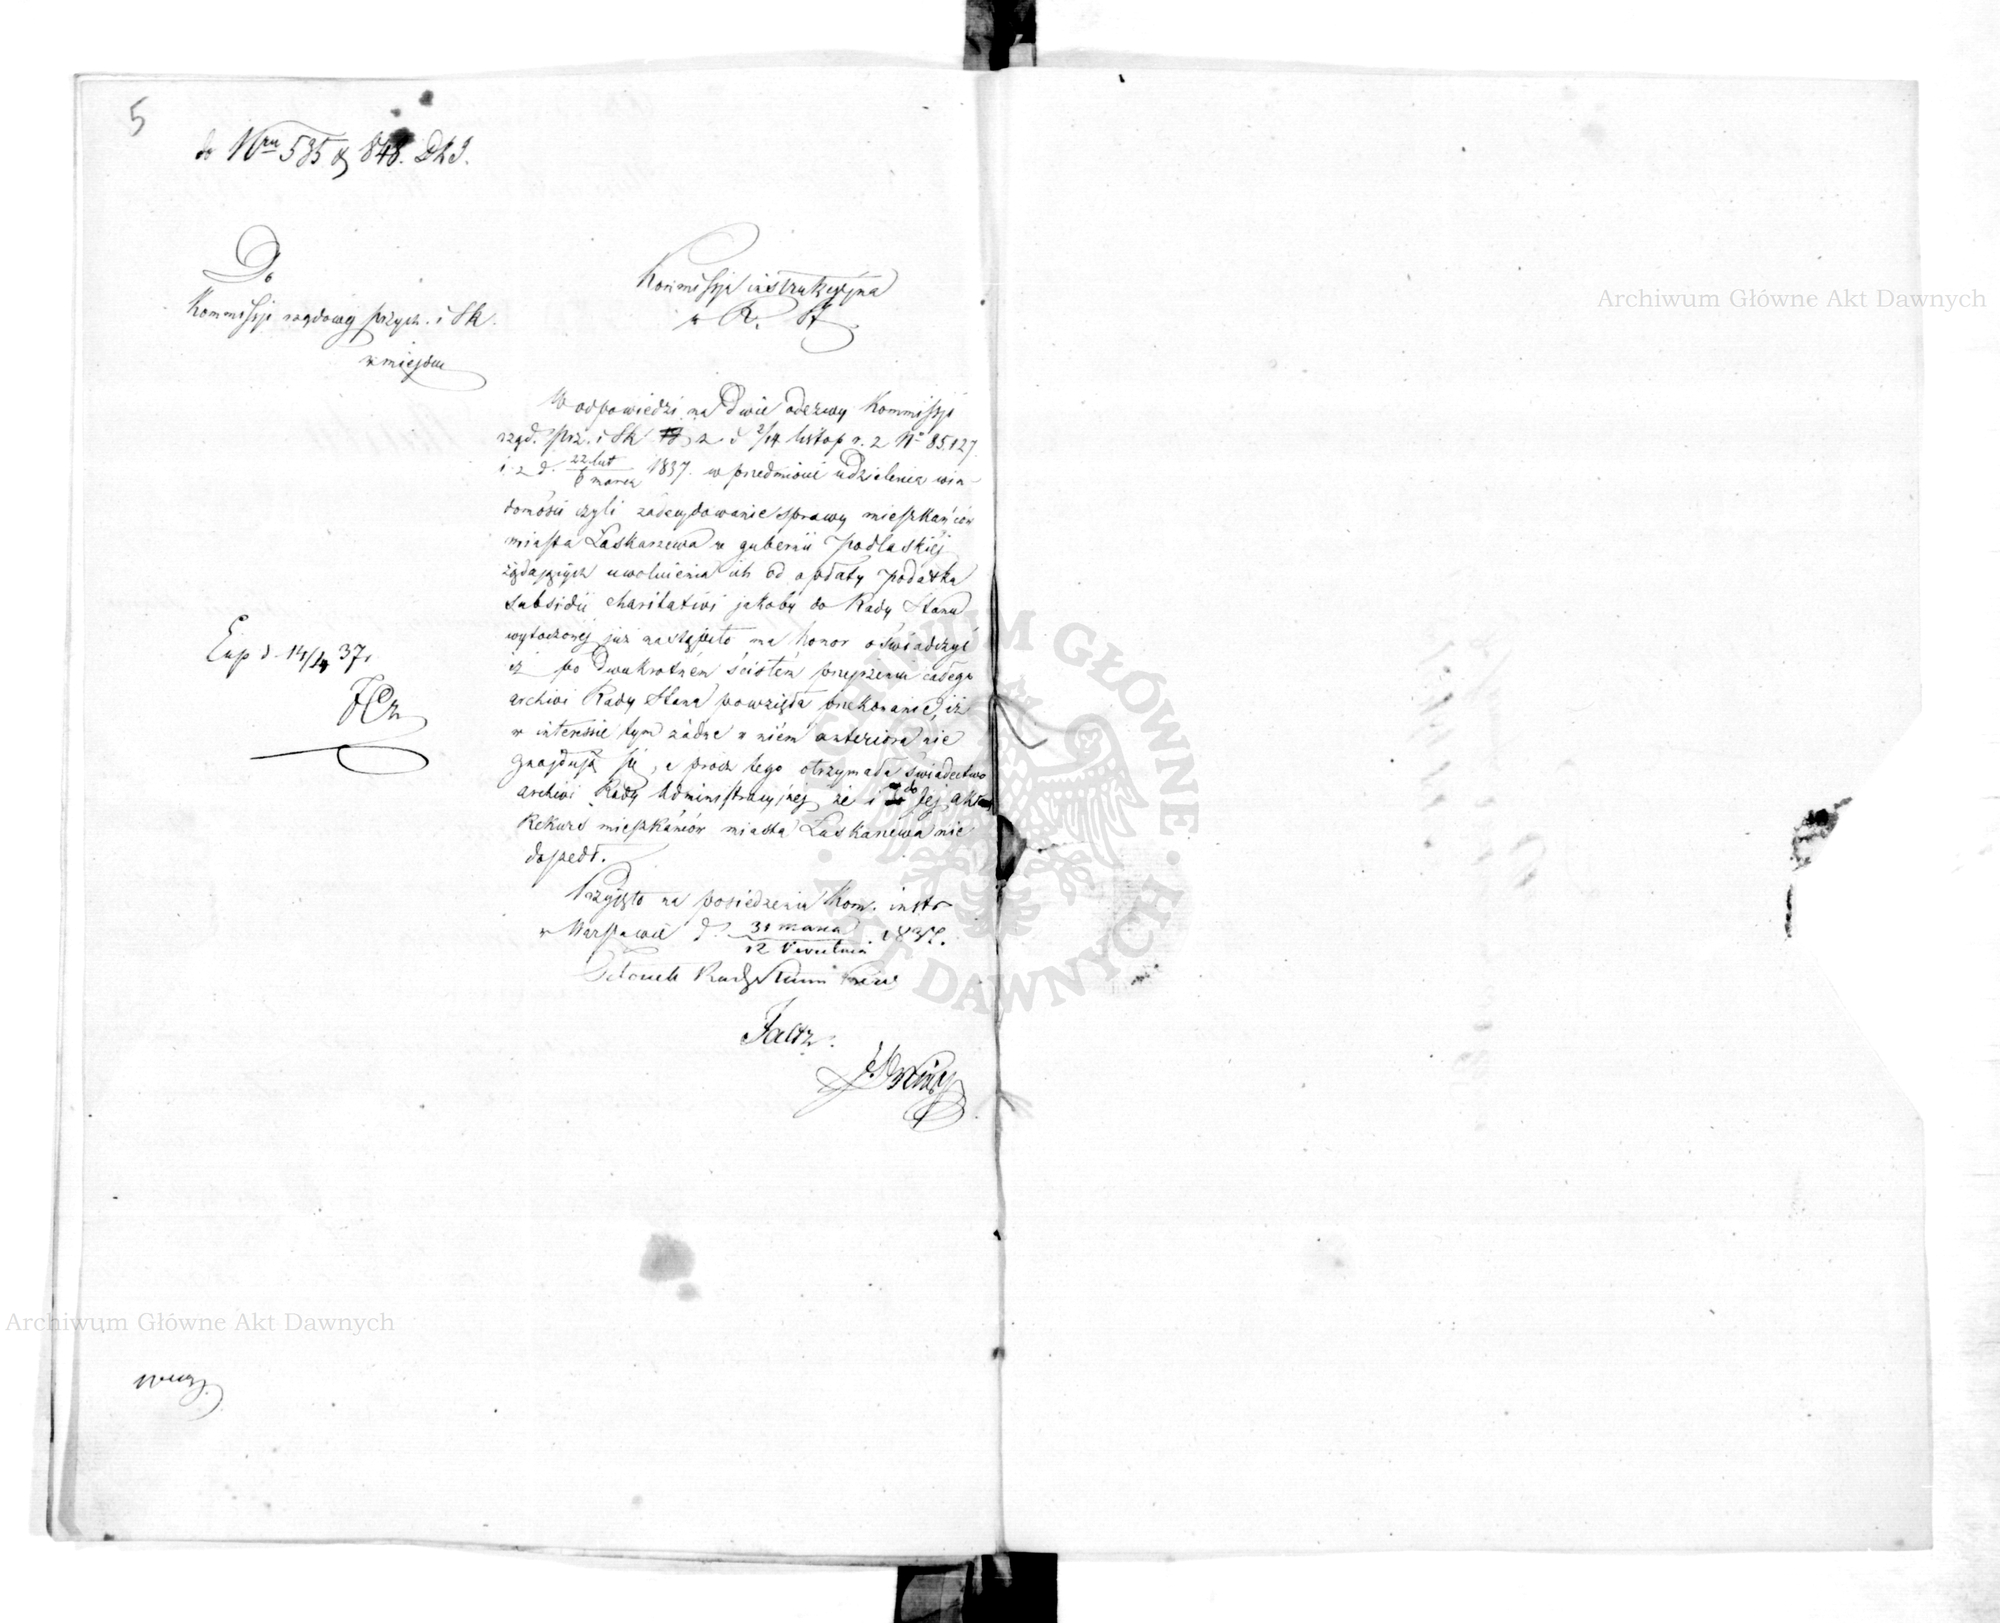 5
do Nru 535 & 848. DKJ.
Do
Kommissji rządowej przych. i Sk.
w miejscu
Kommissja instrukcyjna
w R. St
W odpowiedzi na dwie odezwy Kommissji
rząd. prz. i Sk z d 2/14 listop r. z N° 85,127
i z d. 22 lut / 6 marca 1837. w przedmiocie udzielenia wia-
domości czyli zadecydowanie sprawy mieszkańców
miasta Łaskarzewa w gubernii Podlaskiej
żądających uwolnienia ich od opłaty podatku
subsidii charitativi jakoby do Rady Stanu
wytoczonej już nastąpiło ma honor oświadczyć
iż po dwukrotném ścisłém przejrzeniu całego
archivi Rady Stanu powzięła przekonanie, iż
w interessie tym żadne w niém anteriora nie
znajdują się, a prócz tego otrzymała świadectwo
archivi Rady Administracyjnej że i do Jej akt
Rekurs mieszkańców miasta Łaskarzewa nie
doszedł.
Przyjęto na posiedzeniu Kom. instr
w Warszawie d. 31 marca / 12 Kwietnia 1837.
Członek Rady Stanu
Faltz.
Exp d. 14/14 37r
Archiwum Główne Akt Dawnych
Archiwum Główne Akt Dawnych
ARCHIWUM GŁÓWNE · AKT DAWNYCH ·